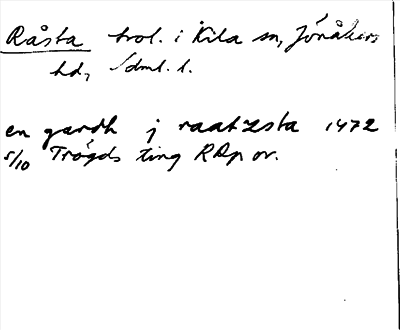 Råsta trol. i Kila sn, Jönåkers
hd, Sdml. l.
en gardh j raatzsta 1472
5/10 Trögds ting RAp or.